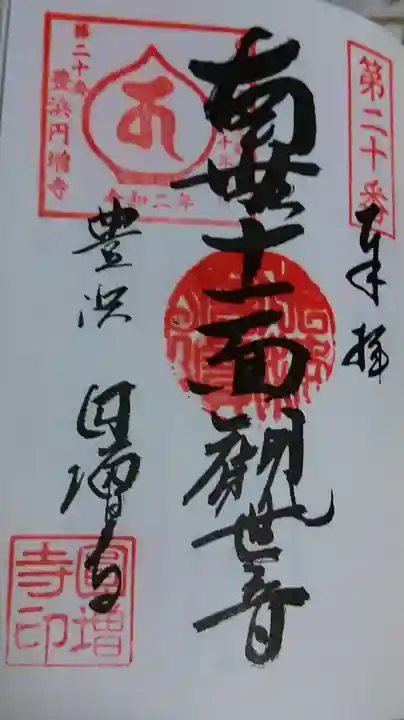 第二十番
奉拝
南無十一面観世音
第二十番
豊浜円増寺
令和二年
豊浜 円増寺
圓增寺印